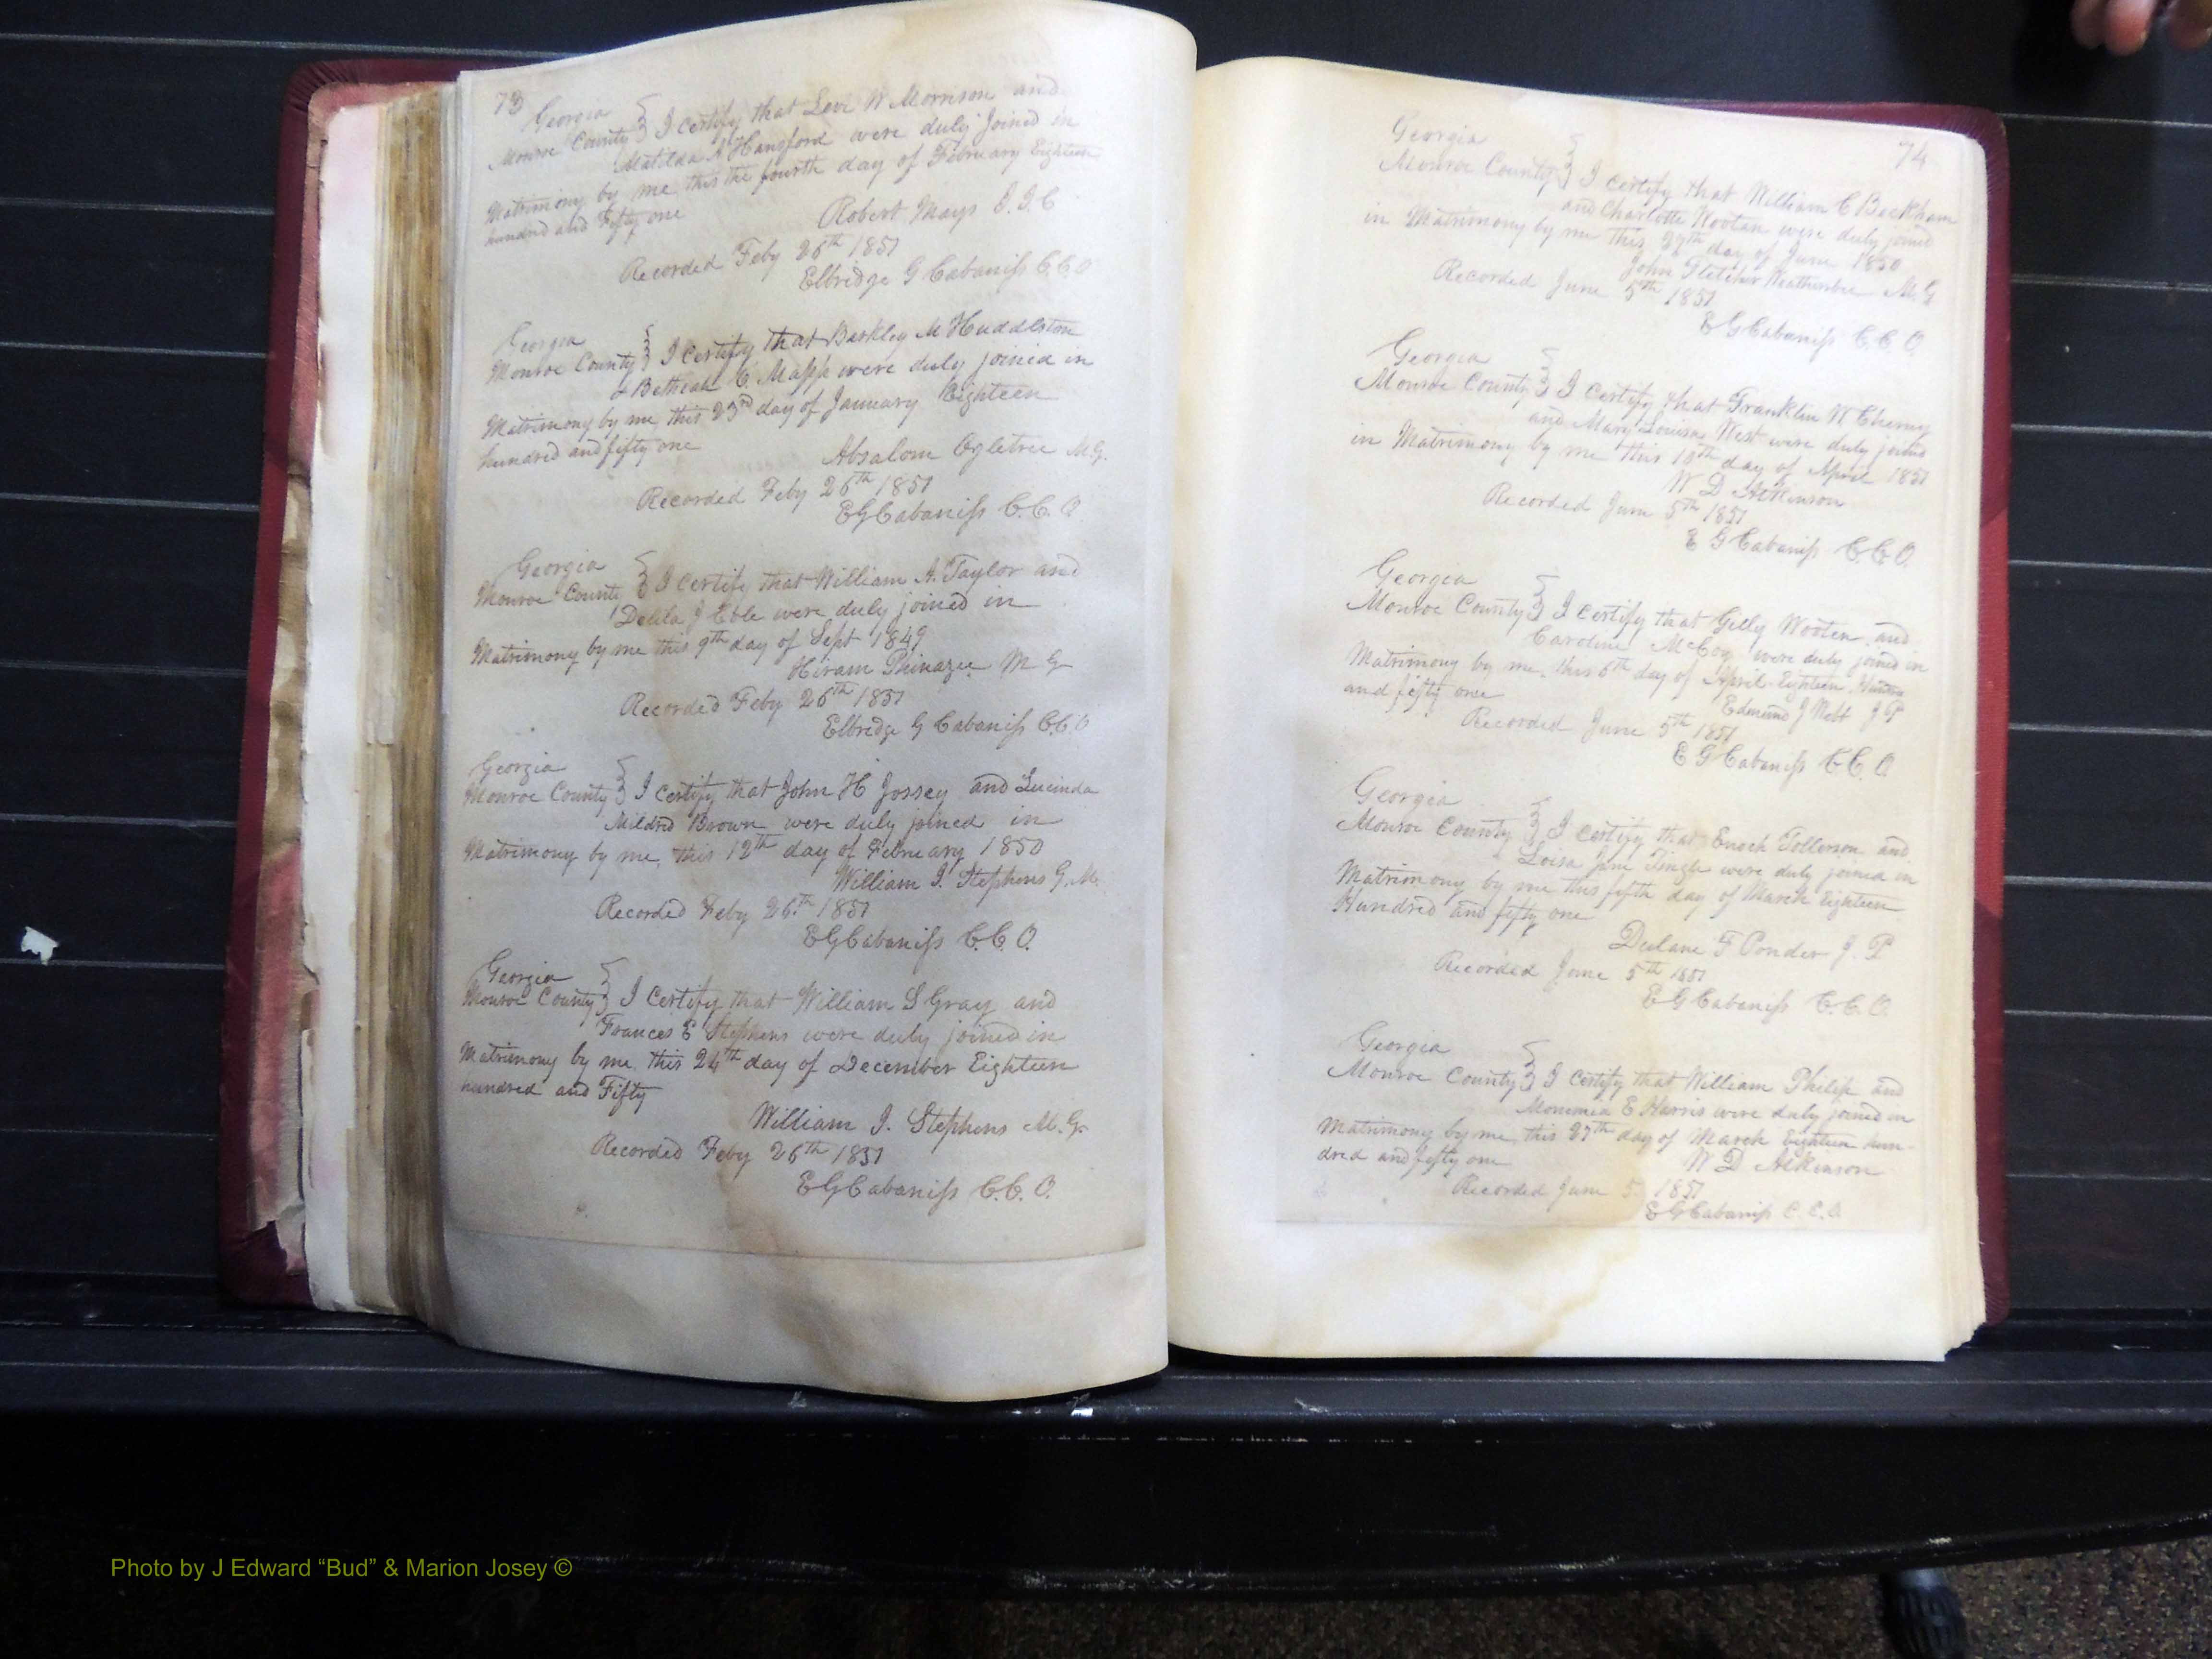 73
Georgia
Monroe County } I certify that Levi W Morrison and
Matilda A Hansford were duly joined in
Matrimony by me this the fourth day of February Eighteen
hundred and Fifty one
Robert Mays J. I. C
Recorded Feby 26th 1851
Elbridge G Cabaniss C. C. O
Georgia
Monroe County } I certify that Barkley M Huddlston
& Bethiah C. Mapp were duly joined in
Matrimony by me this 23rd day of January Eighteen
hundred and fifty one
Absalom Ogletree M. G.
Recorded Feby 26th 1851
E G Cabaniss C. C. O.
Georgia
Monroe County } I certify that William A. Taylor and
Delila J were duly joined in
Matrimony by me this 9th day of Sept 1849
Hiram Phinazee M G
Recorded Feby 26th 1851
Elbredge G Cabaniss C. C. O
Georgia
Monroe County } I certify that John H Jossey and Lucinda
Mildred Brown were duly joined in
Matrimony by me, this 12th day of February 1850
William J. Stephens G. M.
Recorded Feby 26th 1851
E G Cabaniss C. C. O.
Georgia
Monroe County } I certify that William S Gray and
Frances E Stephens were duly joined in
Matrimony by me this 24th day of December Eighteen
hundred and Fifty
William J. Stephens M. G.
Recorded Feby 26th 1851
E G Cabaniss C. C. O.
74
Georgia
Monroe County } I certify that William C Beckham
and Charlotte Wootan were duly joined
in Matrimony by me this 27th day of June 1850
John Fletcher Weathersbee M. G
Recorded June 5th 1851
E G Cabaniss C. C. O.
Georgia
Monroe County } I certify that Franklin W Cheney
and Mary Louisa West were duly joined
in Matrimony by me this 10th day of April 1851
W D Atkinson
Recorded June 5th 1851
E G Cabaniss C. C. O.
Georgia
Monroe County } I certify that Gilly Wooten and
Caroline McCoy were duly joined in
Matrimony by me, this 6th day of April Eighteen Hundred
and fifty one
Edmund J Webb J P
Recorded June 5th 1851
E G Cabaniss C. C. O
Georgia
Monroe County } I certify that Enoch Tollerson and
Loisa Jane Tingle were duly joined in
Matrimony by me this fifth day of March Eighteen
Hundred and fifty one
F Ponder J. P
Recorded June 5th 1851
E G Cabaniss C. C. O.
Georgia
Monroe County } I certify that William Philip and
Monimia E Harris were duly joined in
Matrimony by me, this 27th day of March Eighteen hun-
dred and fifty one
W D Atkinson
Recorded June 5 1851
E G Cabaniss C. C. O.
Photo by J Edward “Bud” & Marion Josey ©